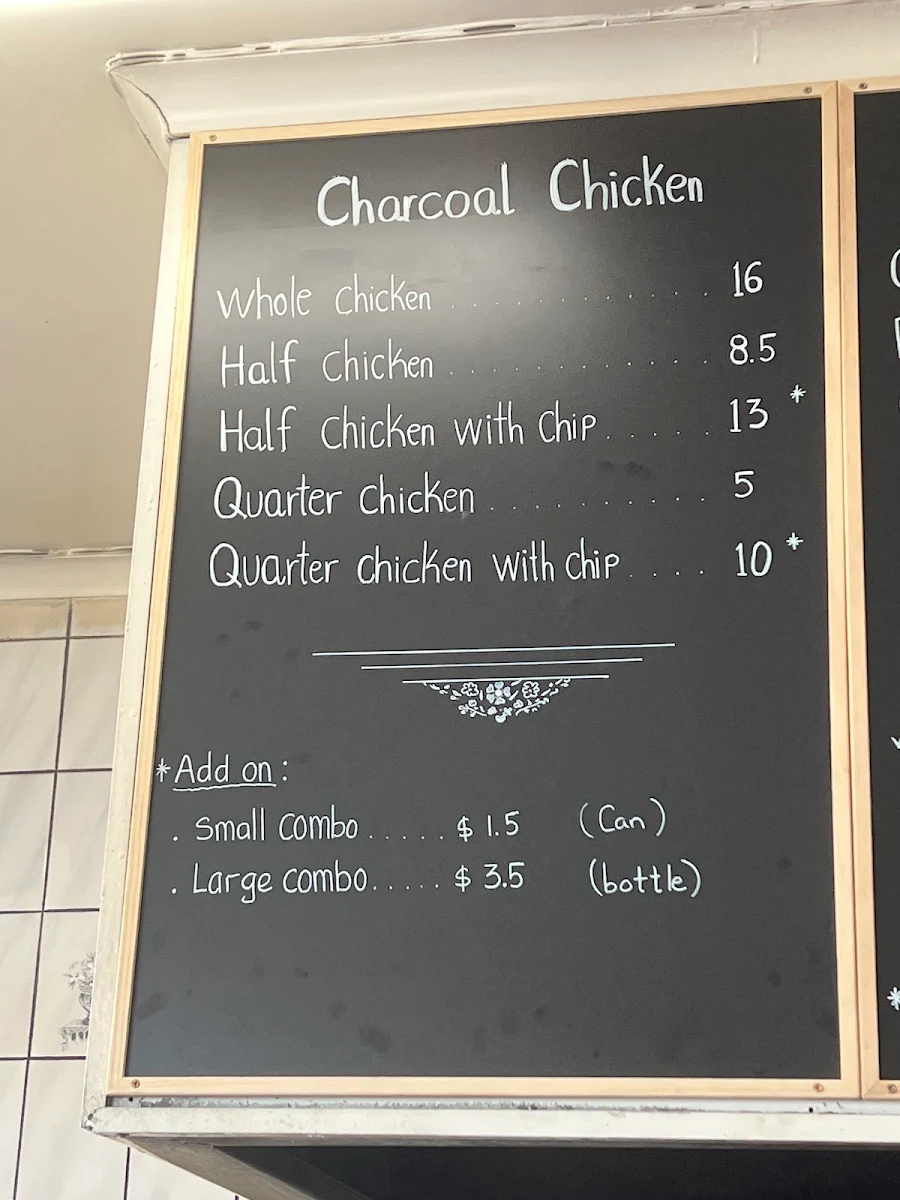 Charcoal Chicken
Whole Chicken . . . . . . . . . . . . 16
Half Chicken . . . . . . . . . . . . 8.5
Half Chicken with Chip . . . . . 13 *
Quarter Chicken . . . . . . . . . . 5
Quarter chicken with chip . . . . 10 *
*Add on:
. Small combo . . . . . $ 1.5 (Can)
. Large combo . . . . . $ 3.5 (bottle)